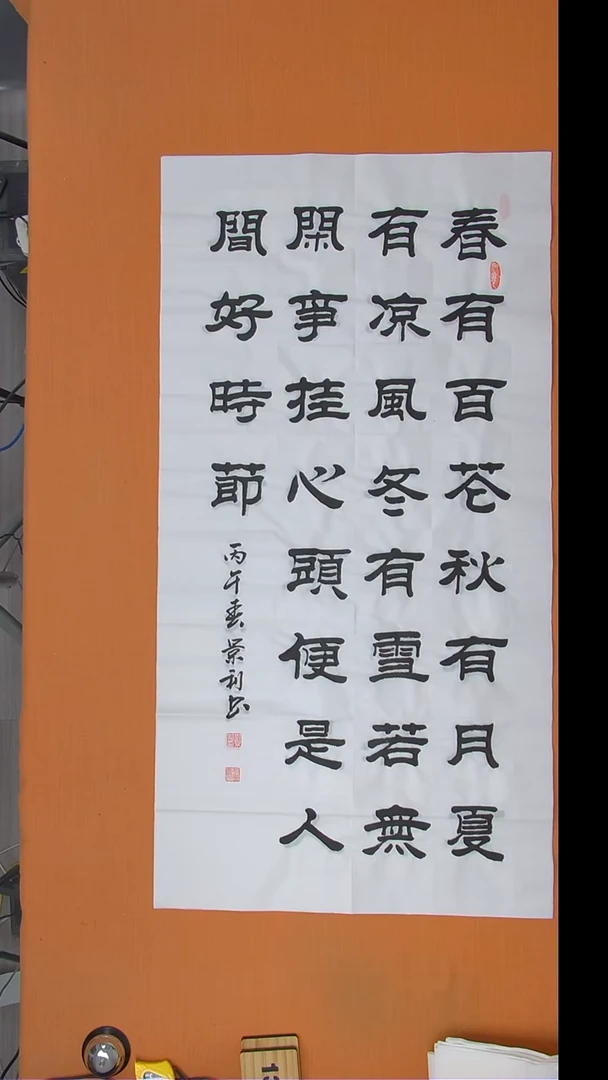 春有百花秋有月夏
有凉風冬有雪若無
閑事挂心頭便是人
間好時節
丙午春景利书
13